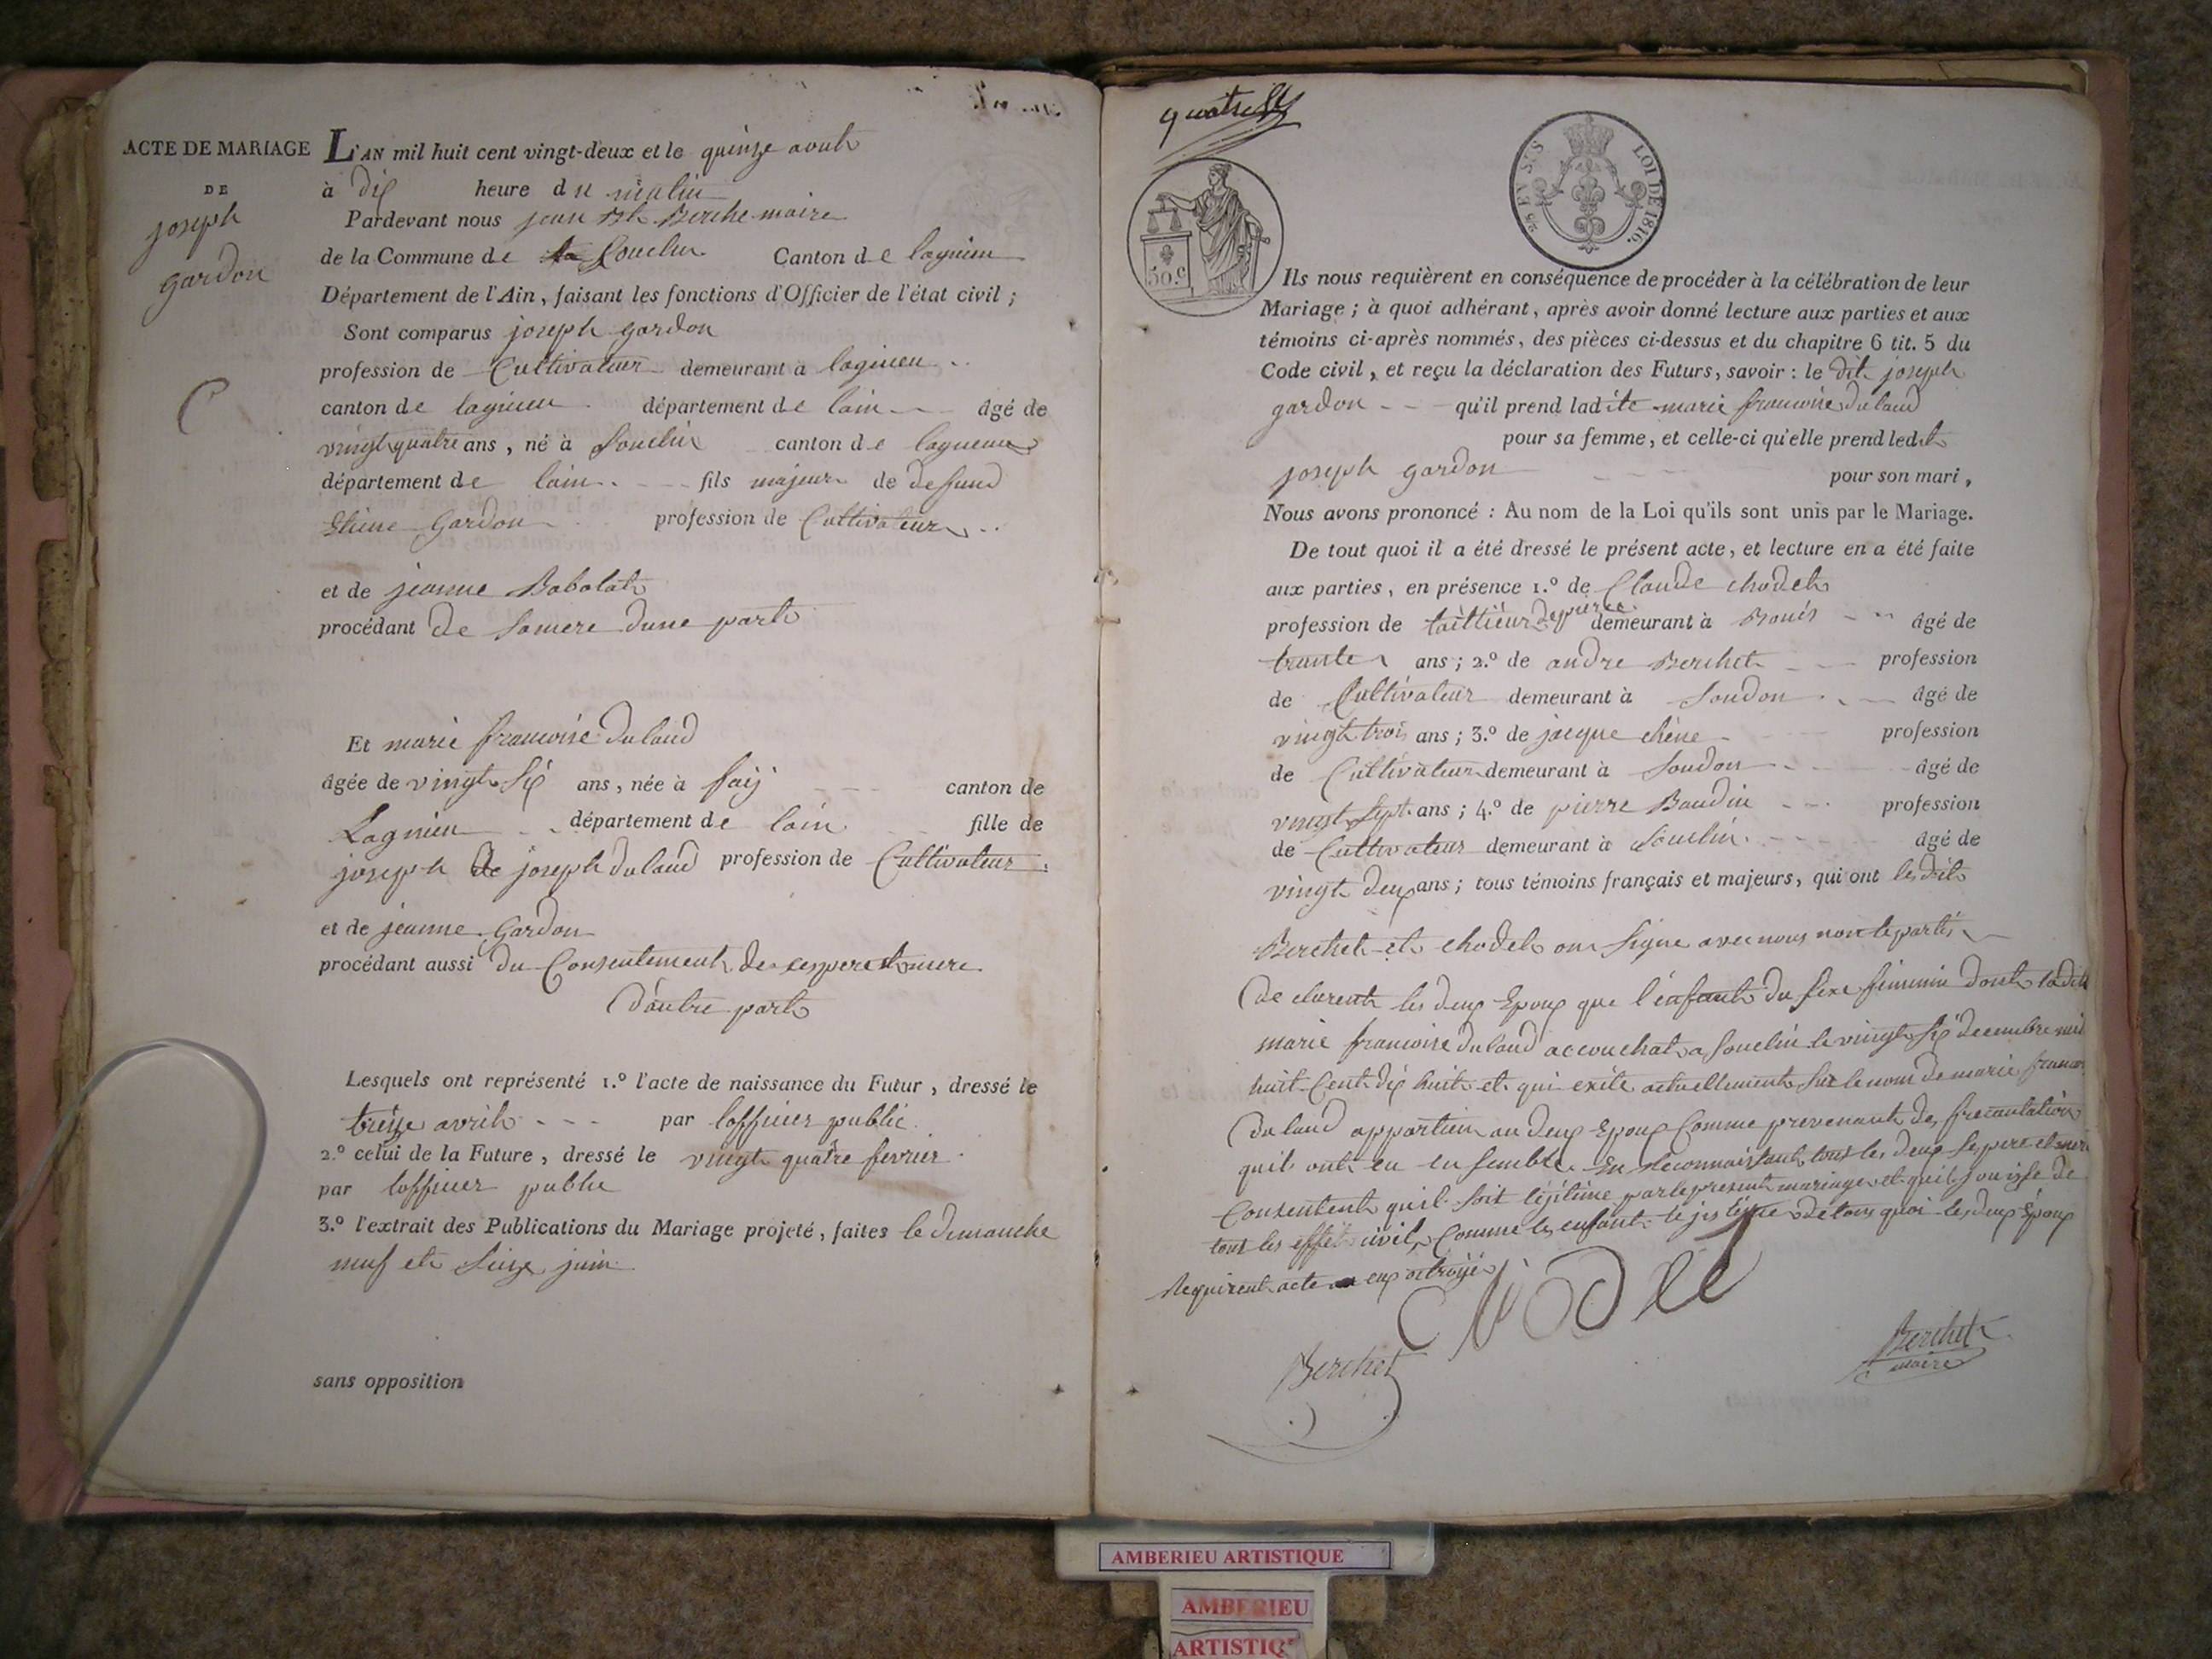 ACTE DE MARIAGE
DE
joseph
gardon
L'AN mil huit cent vingt-deux et le quinze aout
à dix heure du matin
Pardevant nous jean Bte Berchet maire
de la Commune de Souclin Canton de lagnieu
Département de l'Ain, faisant les fonctions d'Officier de l'état civil ;
Sont comparus joseph gardon
profession de Cultivateur demeurant à lagnieu
canton de lagnieu département de lain âgé de
vingt quatre ans, né à Souclin canton de lagnieu
département de lain fils majeur de defund
Etiene Gardon profession de Cultivateur
et de jeanne Babolat
procédant de Samere dune part
Et marie francoise dulaud
âgée de vingt Six ans, née à faij canton de
Lagnieu département de lain fille de
joseph de joseph dulaud profession de Cultivateur
et de jeanne Gardon
procédant aussi du Consentement de ses pere et mere
d'autre part
Lesquels ont représenté 1.º l'acte de naissance du Futur, dressé le
treize avril par lofficier public
2.º celui de la Future, dressé le vingt quatre fevrier
par lofficier public
3.º l'extrait des Publications du Mariage projeté, faites le dimanche
neuf et Seize juin
sans opposition
quatre
25 EN SUS LOI DE 1816.
50.c
Ils nous requièrent en conséquence de procéder à la célébration de leur
Mariage ; à quoi adhérant, après avoir donné lecture aux parties et aux
témoins ci-après nommés, des pièces ci-dessus et du chapitre 6 tit. 5 du
Code civil, et reçu la déclaration des Futurs, savoir : le dit joseph
gardon qu'il prend ladite marie francoise dulaud
pour sa femme, et celle-ci qu'elle prend ledit
joseph gardon pour son mari,
Nous avons prononcé : Au nom de la Loi qu'ils sont unis par le Mariage.
De tout quoi il a été dressé le présent acte, et lecture en a été faite
aux parties, en présence 1.º de Claude chodel
profession de taillieur de pierre demeurant à âgé de
trante ans ; 2.º de andre Berchet profession
de Cultivateur demeurant à Soudon âgé de
vingt trois ans ; 3.º de jacque chêne profession
de Cultivateur demeurant à Soudon âgé de
vingt Sept ans ; 4.º de pierre Baudin profession
de Cultivateur demeurant à Souclin âgé de
vingt deux ans ; tous témoins français et majeurs, qui ont lesdit
Berchet et chodel on Signe avec nous non le partis
de clarent les deux Epoux que l'enfant du sexe feminin dont ladit
marie francoise dulaud accouchat a Souclin le vingt Six decembre mil
huit Cent dix huit et qui exite actuellement Sur le nom de marie francois
dulaud appartien au deux Epoux Comme prevenant des
quil ont eu ensemble. En Reconnaissant tous les deux Se pere et mere
Consentent quil Soit légitime par le present mariage et quil jouisse de
tous les effet civil Comme les enfant lejistime de tous quoi les deux Epoux
Requirent acte eux octroyé
chodel
Berchet
Berchet
maire
AMBERIEU ARTISTIQUE
AMBERIEU
ARTISTIQ